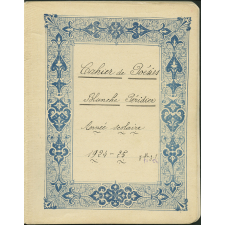 Cahier de Poésies
Blanche
Année scolaire
1924-25